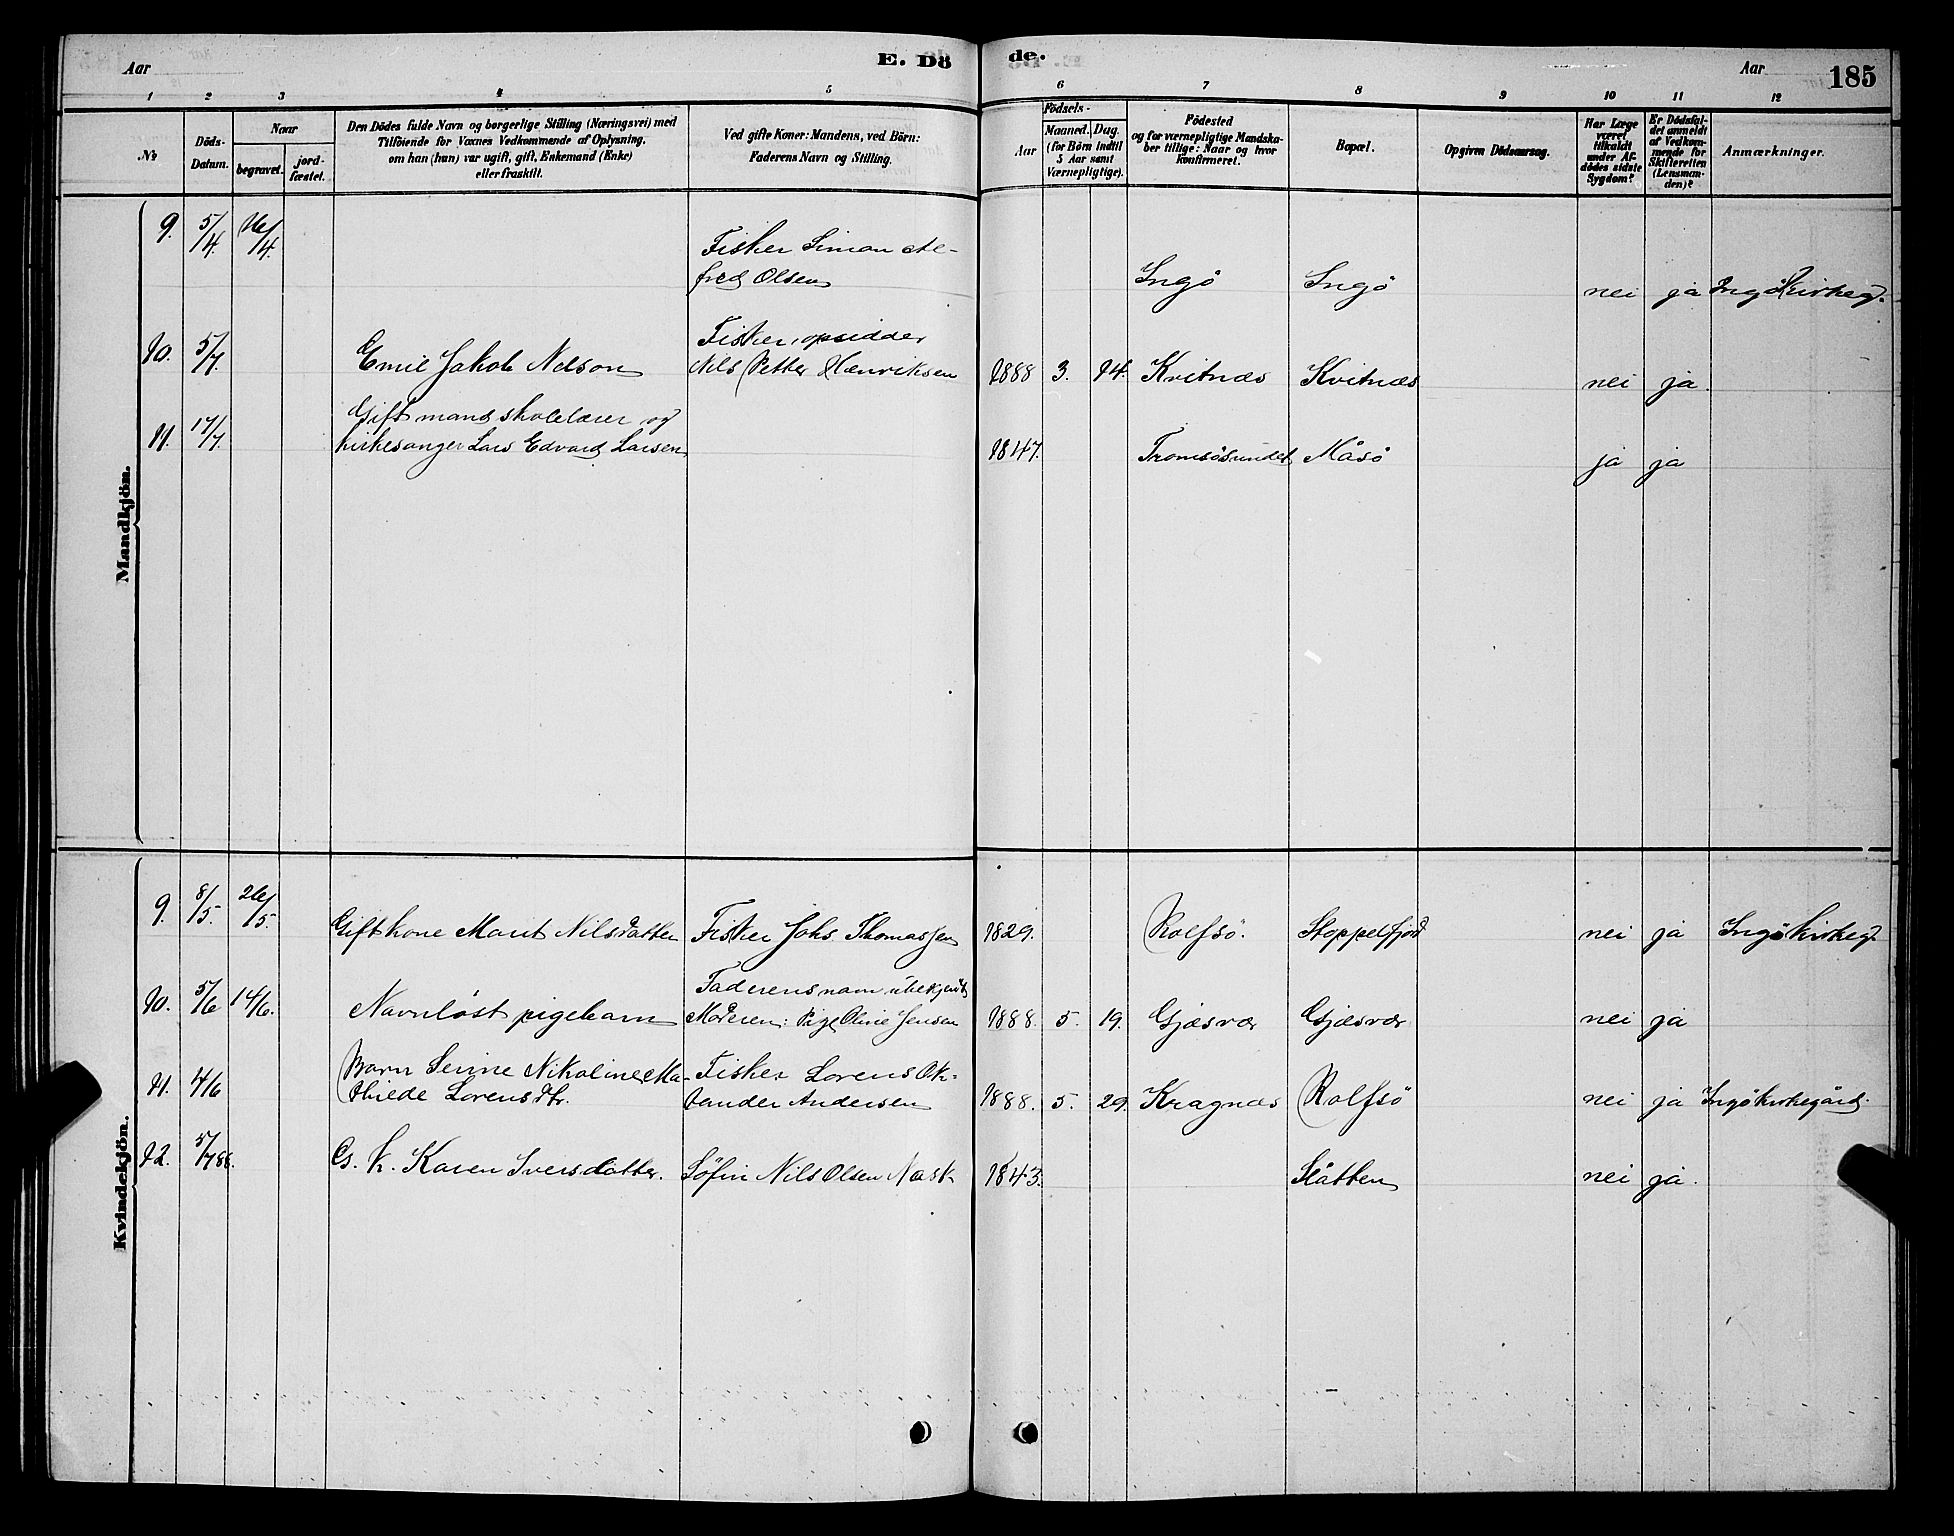 Aar
E. Dö
de.
Aar
185
1 2 3 4 5 6 7 8 9 10 11 12
No
Döds-
Datum.
Naar
begravet.
jord-
fæstet.
Den Dödes fulde Navn og borgerlige Stilling (Næringsvei) med
Tilföiende for Voxnes Vedkommende af Oplysning,
om han (hun) var ugift, gift, Enkemand (Enke)
eller fraskilt.
Ved gifte Koner: Mandens, ved Börn:
Faderens Navn og Stilling.
Aar
Födsels-
Maaned. Dag.
(for Börn indtil
5 Aar samt
Værnepligtige).
Födested
og for værnepligtige Mandska-
ber tillige: Naar og hvor
konfirmeret.
Bopæl.
Opgiven Dödsaarsag.
Har Læge
været
tilkaldt
under Af-
dödes sidste
Sygdom?
Er Dödsfal-
det anmeldt
af Vedkom-
mende for
Skifteretten
(Lensman-
den)?
Anmærkninger.
Mandkjön.
9. 5/4. 16/4. Fisker Simon Al-
fred Olsen Ingö Ingö nei ja Ingö Kirkeg.
Fisker, opsidder
10. 5/7. Emil Jakob Nelson Nils Petter Henriksen 1888 3. 14. Kvitnæs Kvitnæs nei ja.
Gift mand skolelærer og
11. 17/7. kirkesanger Lars Edvard Larsen 1847. Tromsösundet Måsö ja ja
Kvindekjön.
9. 8/5. 26/5. Gift kone Marit Nilsdatter Fisker Johs Thomassen 1829. Rolfsö. Stoppelfjord nei ja Ingö Kirkeg.
Faderens navn ubekjendt
10. 5/6 14/6. Navnlöst pigebarn Moderen: Pige Oline Jensen 1888. 5. 19. Gjæsvær Gjæsvær nei ja
Barn Serine Nikoline Ma- Fisker Lorens Ok-
11. 4/6 thilde Lorensdtr. tander Andersen 1888. 5. 29. Kragnæs Rolfsö nei ja Ingö kirkegård.
12. 5/7 88. G. k. Karen Iversdatter. Söfin Nils Olsen Næsk 1843. Slåtten nei ja.